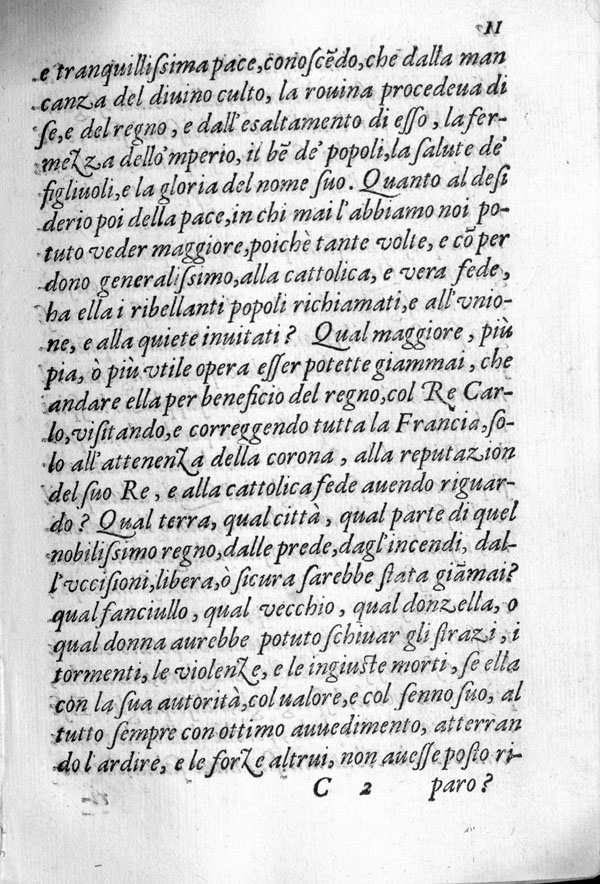 11
e tranquillissima pace, conoscẽdo, che dalla man
canza del diuino culto, la rouina procedeua di
se, e del regno, e dall'esaltamento di esso, la fer-
mezza dello'mperio, il bẽ de' popoli, la salute de'
figliuoli, e la gloria del nome suo. Quanto al desi
derio poi della pace, in chi mai l'abbiamo noi po-
tuto veder maggiore, poichè tante volte, e cõ per
dono generalissimo, alla cattolica, e vera fede,
ha ella i ribellanti popoli richiamati, e all'vnio-
ne, e alla quiete inuitati? Qual maggiore, più
pia, ò più vtile opera esser potette giammai, che
andare ella per beneficio del regno, col Re Car-
lo, visitando, e correggendo tutta la Francia, so-
lo all'attenenza della corona, alla reputazion
del suo Re, e alla cattolica fede auendo riguar-
do? Qual terra, qual città, qual parte di quel
nobilissimo regno, dalle prede, dagl'incendi, dal-
l'vccisioni, libera, ò sicura sarebbe stata giãmai?
qual fanciullo, qual vecchio, qual donzella, o
qual donna aurebbe potuto schiuar gli strazi, i
tormenti, le violenze, e le ingiuste morti, se ella
con la sua autorità, col ualore, e col senno suo, al
tutto sempre con ottimo auuedimento, atterran
do l'ardire, e le forze altrui, non auesse posto ri-
C 2 paro?